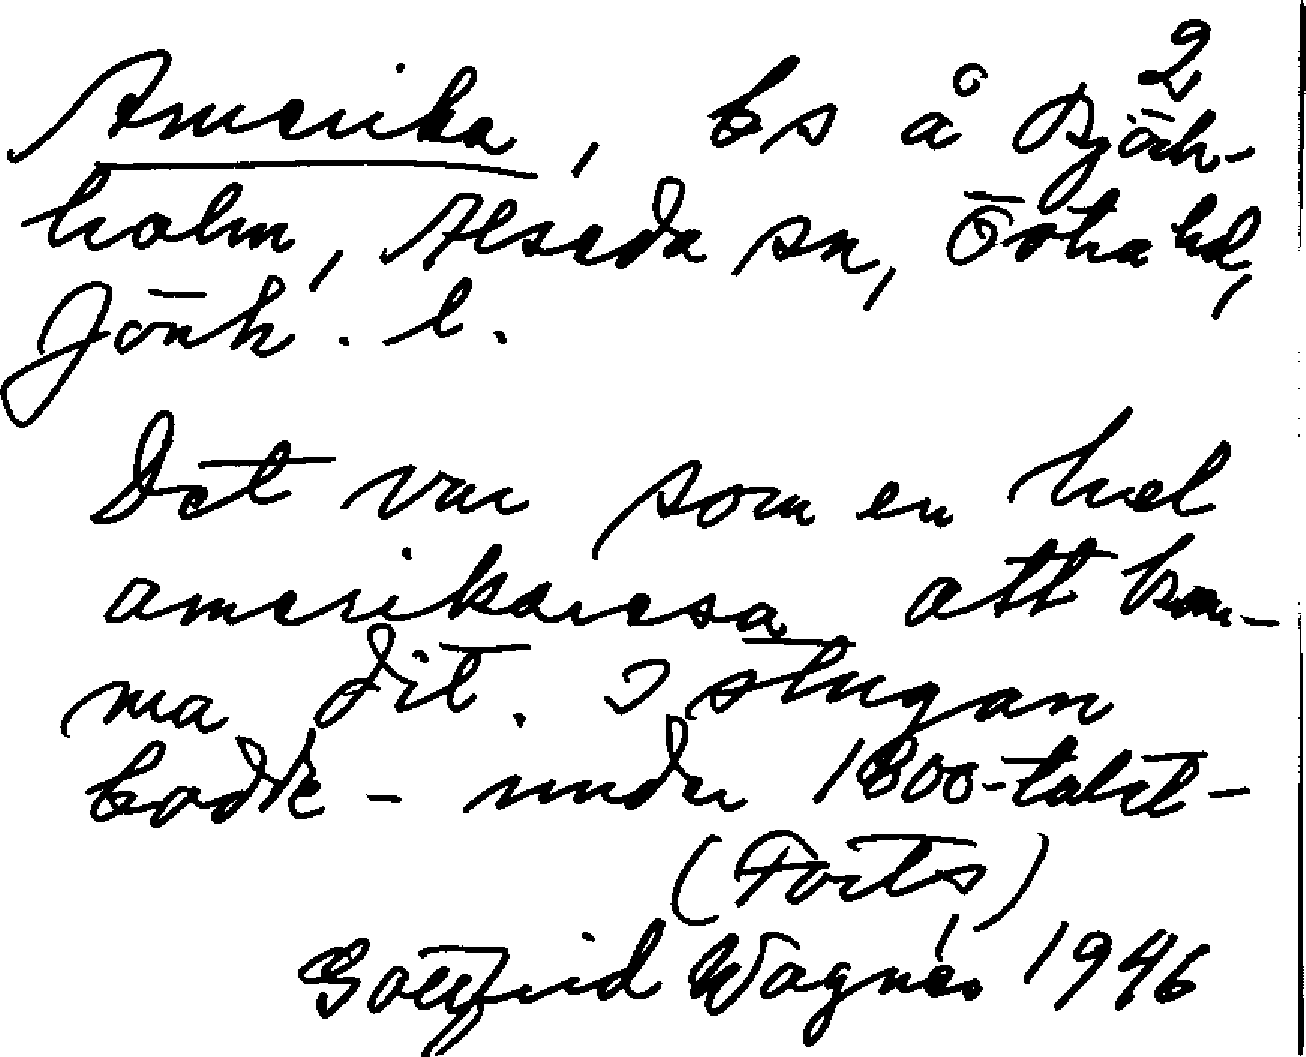 2
Amerika, bs å Björk-
holm, Alseda sn, Östra hd,
Jönk. l.
Det var som en hel
amerikaresa att kom-
ma dit. I stugan
bodde - under 1800-talet -
(Forts)
Gottfrid Wagnér 1946